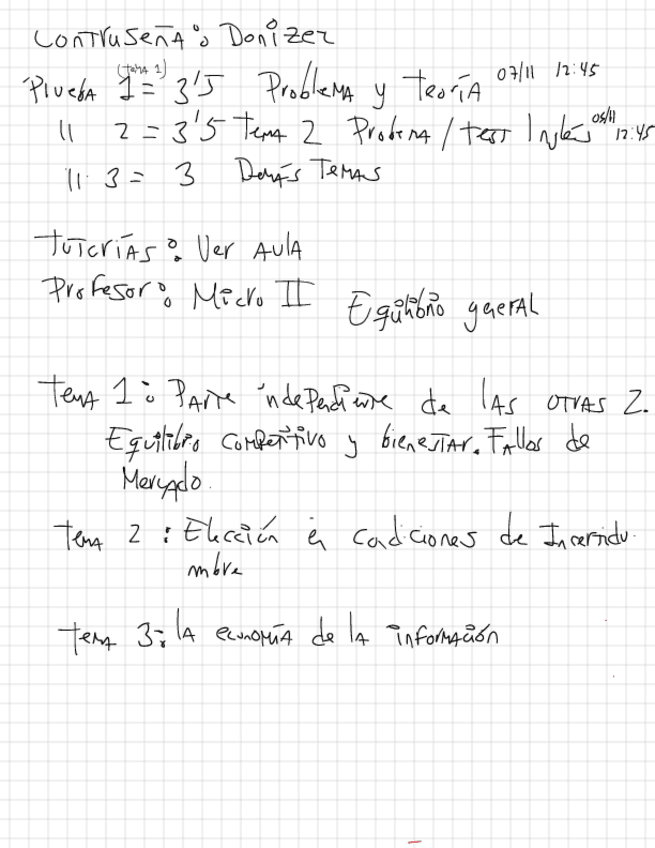 Contraseña: Donizer
(Tema 1)
Prueba 1 = 3'5 Problema y teoría 07/11 12:45
11 2 = 3'5 Tema 2 Problema / test Inglés 12:45
11 3 = 3 Demás Temas
Tutorías: Ver Aula
Profesor: Micro II Equilibrio general
Tema 1: Parte independiente de las otras 2.
Equilibrio competitivo y bienestar. Fallos de
Mercado.
Tema 2: Elección en condiciones de Incertidu-
mbre
Tema 3: la economía de la información